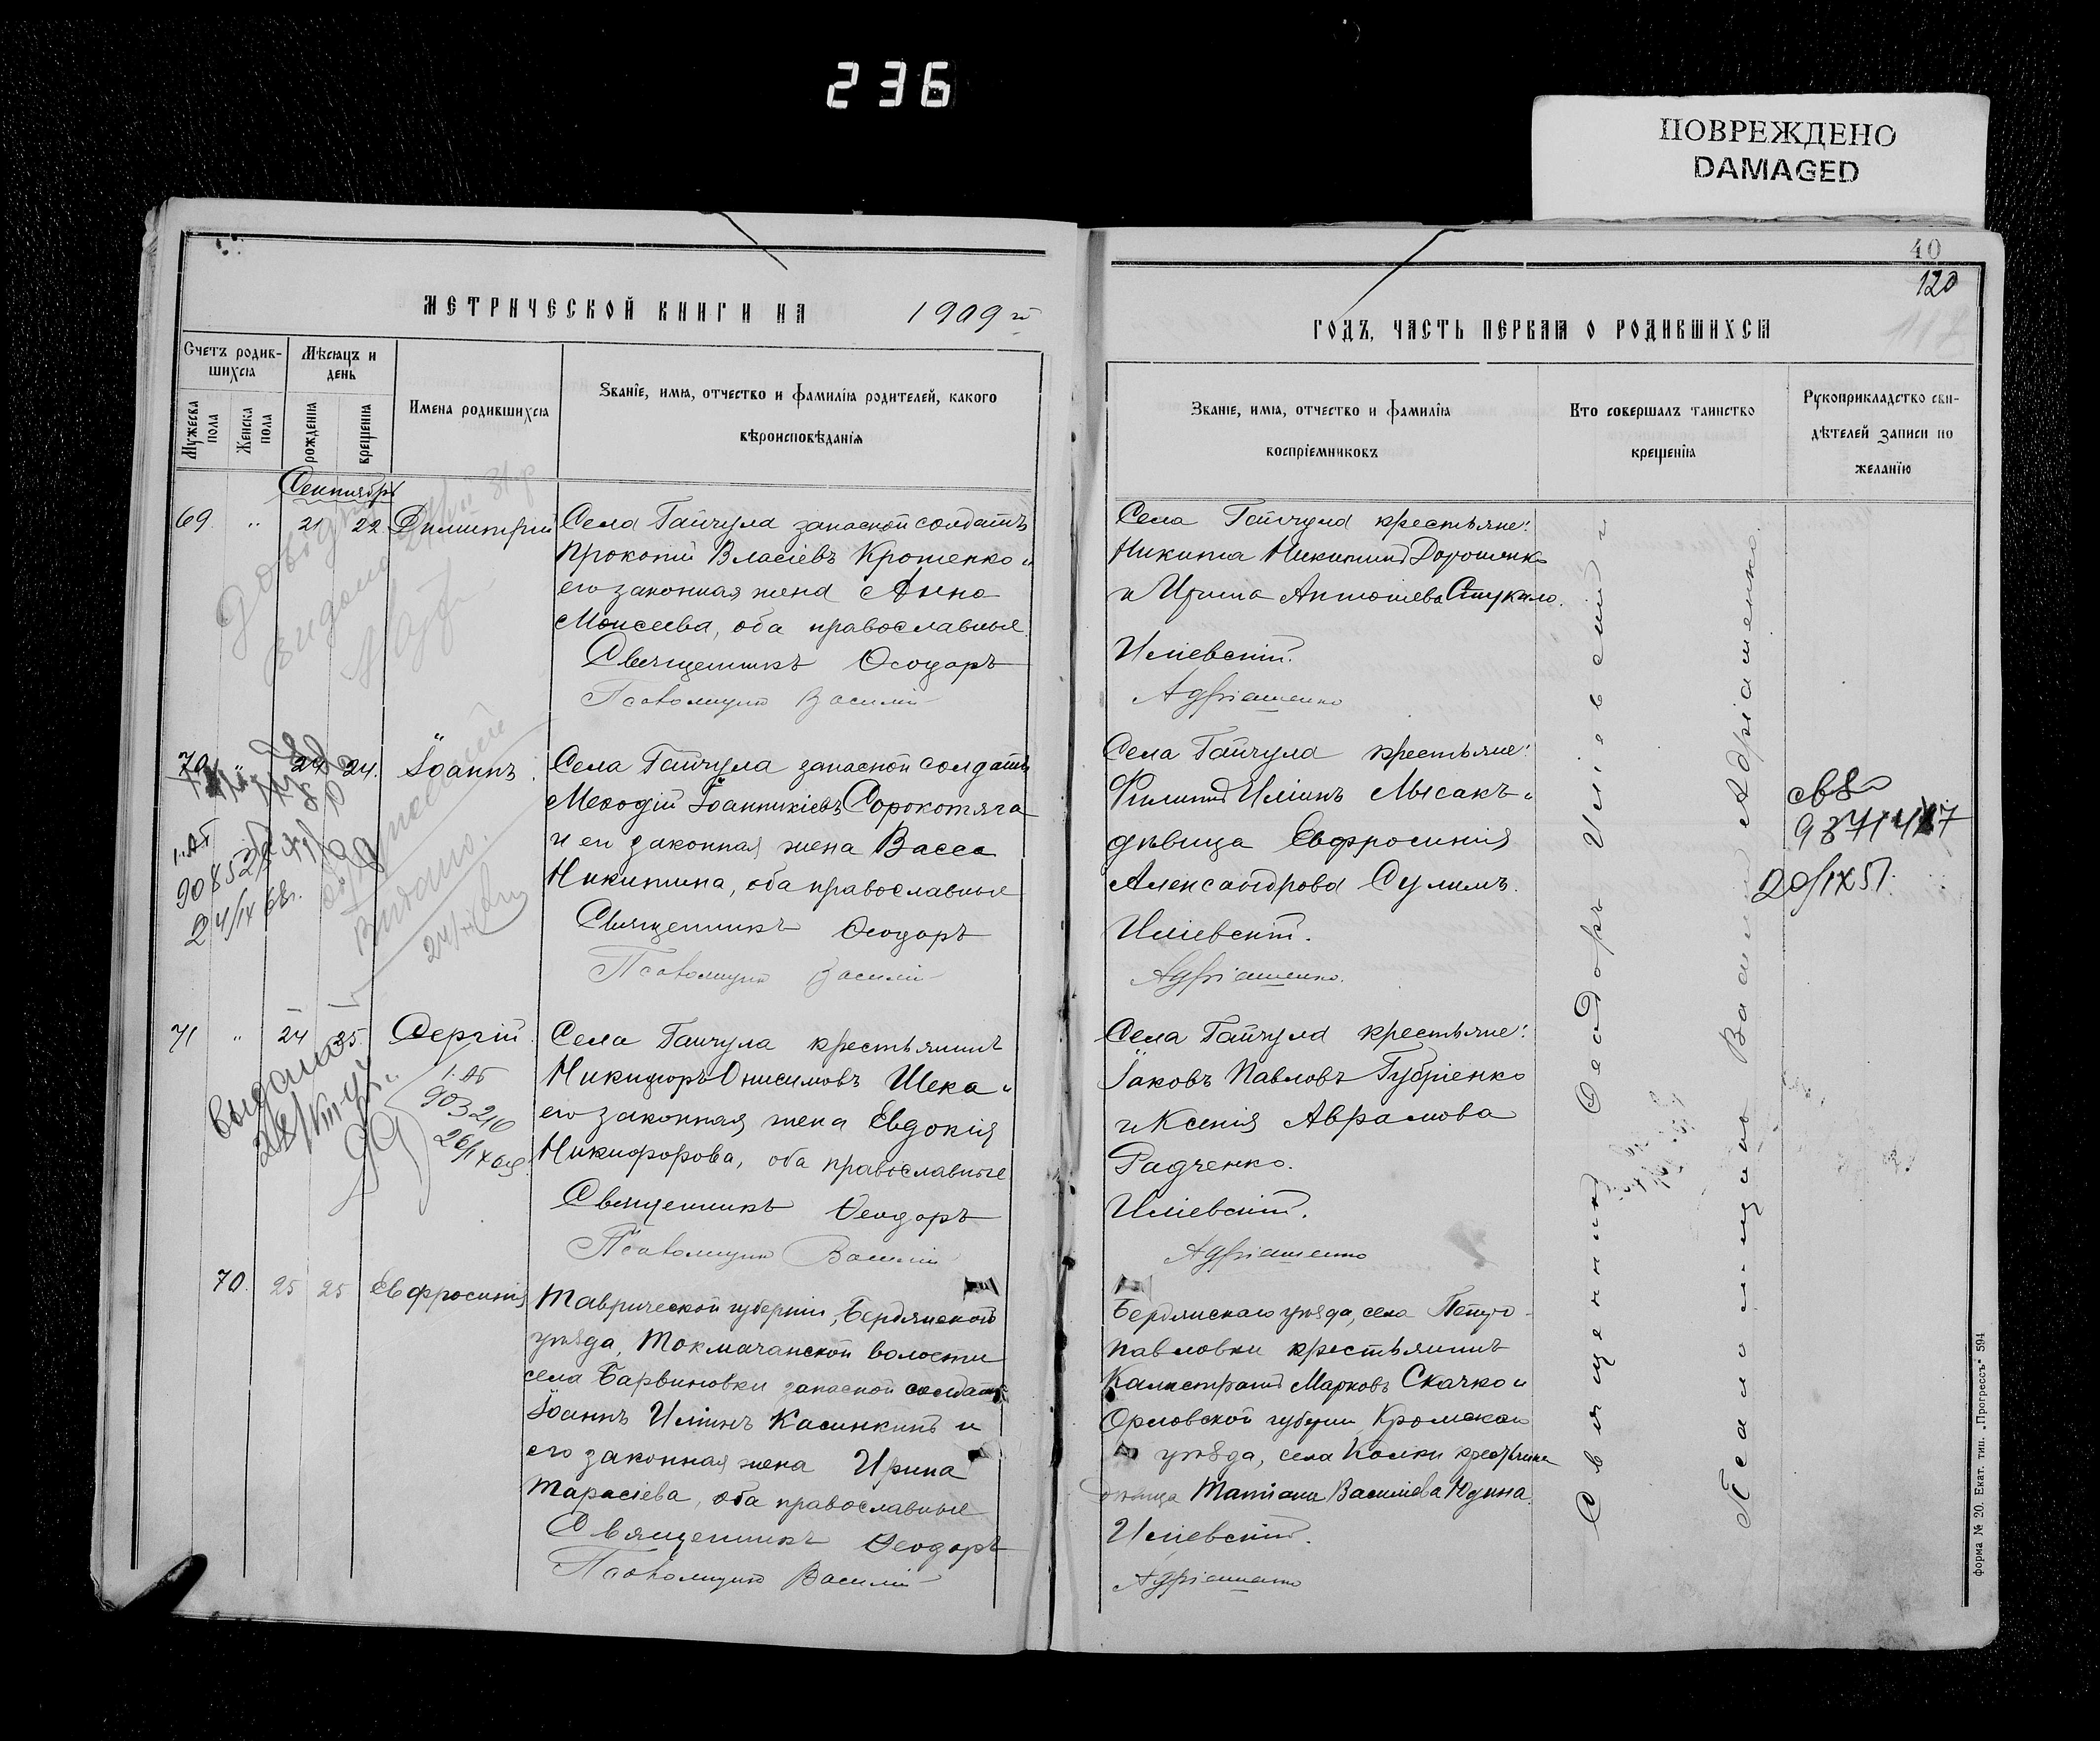 236
ПОВРЕЖДЕНО
DAMAGED
МЕТРИЧЕСКОЙ КНИГИ НА 1909 й
Счетъ родив-
шихся
Мѣсяцъ и
день
Мужеска
пола
Женска
пола
рожденія
крещенія
Имена родившихся
Званіе, имя, отчество и фамилія родителей, какого
вѣроисповѣданія
Сентябрь
69 " 21 22 Димитрій
Села Гайчула запасной солдатъ
Прокопій Власіевъ Кротенко и
его законная жена Анна
Моисеева, оба православные.
Священникъ Ѳеодоръ
Псаломщикъ Василій
70 " 24 24. Іоаннъ.
Села Гайчула запасной солдатъ
Меѳодій Іоанникіевъ Сорокотяга
и его законная жена Васса
Никитина, оба православные
Священникъ Ѳеодоръ
Псаломщикъ Василій
1.АБ
24/IX 68г.
Видано.
71 " 24 25. Сергій.
Села Гайчула крестьянинъ
Никифоръ Онисимовъ Шека и
его законная жена Евдокія
Никифорова, оба православные
Священникъ Ѳеодоръ
Псаломщикъ Василій
выдано
1.АБ
903210
70. 25 25 Евфросинія
Таврической губерніи, Бердянскаго
уѣзда, Токмачанской волости
села Барвиновки запасной солдатъ
Іоаннъ Иліинъ Касинкинъ и
его законная жена Ирина
Тарасіева, оба православные
Священникъ Ѳеодоръ
Псаломщикъ Василій
40
120
ГОДЪ, ЧАСТЬ ПЕРВАЯ О РОДИВШИХСЯ
Званіе, имя, отчество и фамилія
воспріемниковъ
Кто совершалъ таинство
крещенія
Рукоприкладство сви-
дѣтелей записи по
желанію
Села Гайчула крестьяне:
Никита Никитинъ Дорошенко
и Ирина Антоніева Стукало.
Иліевскій.
Адріашенко
Села Гайчула крестьяне:
Филиппъ Иліинъ Лысакъ и
дѣвица Евфросинія
Александрова Сулимъ.
Иліевскій.
Адріашенко.
20/IX 51.
Села Гайчула крестьяне:
Іаковъ Павловъ Губріенко
и Ксенія Авраамова
Радченко.
Иліевскій.
Адріашенко
Бердянскаго уѣзда, села Петро-
павловки крестьянинъ
Калистратъ Марковъ Скачко и
Орловской губерніи Кромскаго
уѣзда, села Колки крестьянка
дѣвица Татіана Василіева Юдина.
Иліевскій.
Адріашенко
Священникъ Ѳеодоръ Иліевскій и
Псаломщикъ Василій Адріашенко.
форма № 20. Екат. тип. „Прогрессъ" 594